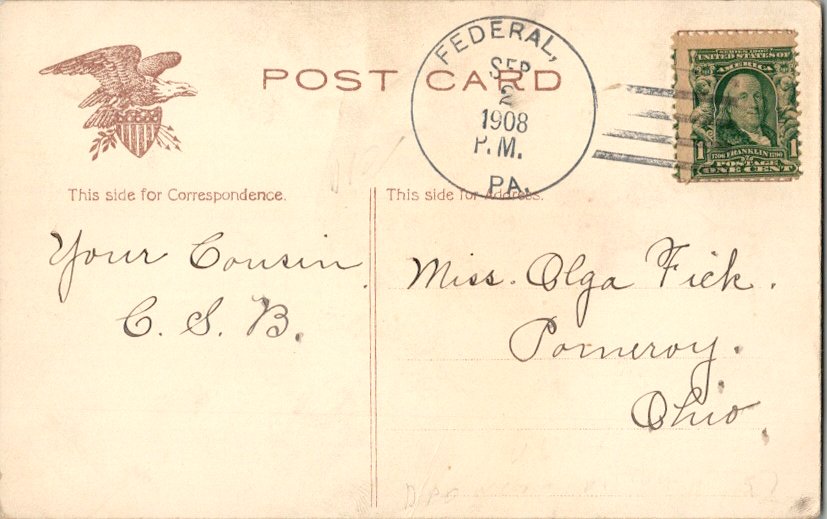 POST CARD
FEDERAL,
SEP
2
1908
P.M.
PA.
SERIES 1902
UNITED STATES OF
AMERICA
1706 FRANKLIN 1790
1 1
POSTAGE
ONE CENT
This side for Correspondence.
This side for Address.
Your Cousin.
C. S. B.
Miss. Olga Fick.
Pomeroy.
Ohio.